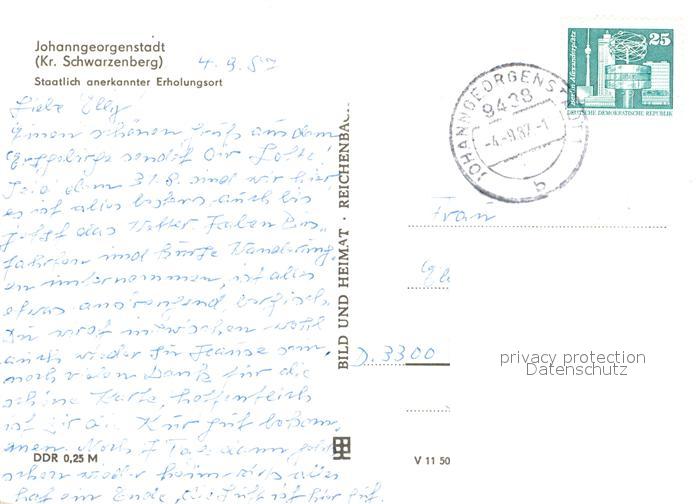 Johanngeorgenstadt
(Kr. Schwarzenberg)
Staatlich anerkannter Erholungsort
4.9.87
Liebe Elly
Einen schönen Gruß aus dem
Erzgebirge sendet Dir Lotte.
Seid dem 31.8. sind wir hier,
es ist alles bestens auch bis
jetzt das Wetter haben Bus-
fahrten und kurze Wanderung
en unternommen, ist alles
etwas anstrengend, bergisch.
Du wirst inzwischen wohl
auch wieder zu Hause sein,
noch vielen Dank für die
schöne Karte, hoffentlich
ist Dir die Kur gut bekom
men. Noch 7 Tage dann
schon wieder heimwärts alles
hat ein Ende, die Luft ist hier gut.
DDR 0,25 M
BILD UND HEIMAT · REICHENBAC
V 11 50
JOHANNGEORGENSTADT 1
9438
-4.-9.87.-1
b
25
Berlin-Alexanderplatz
DEUTSCHE DEMOKRATISCHE REPUBLIK
Frau
D. 3300
privacy protection
Datenschutz